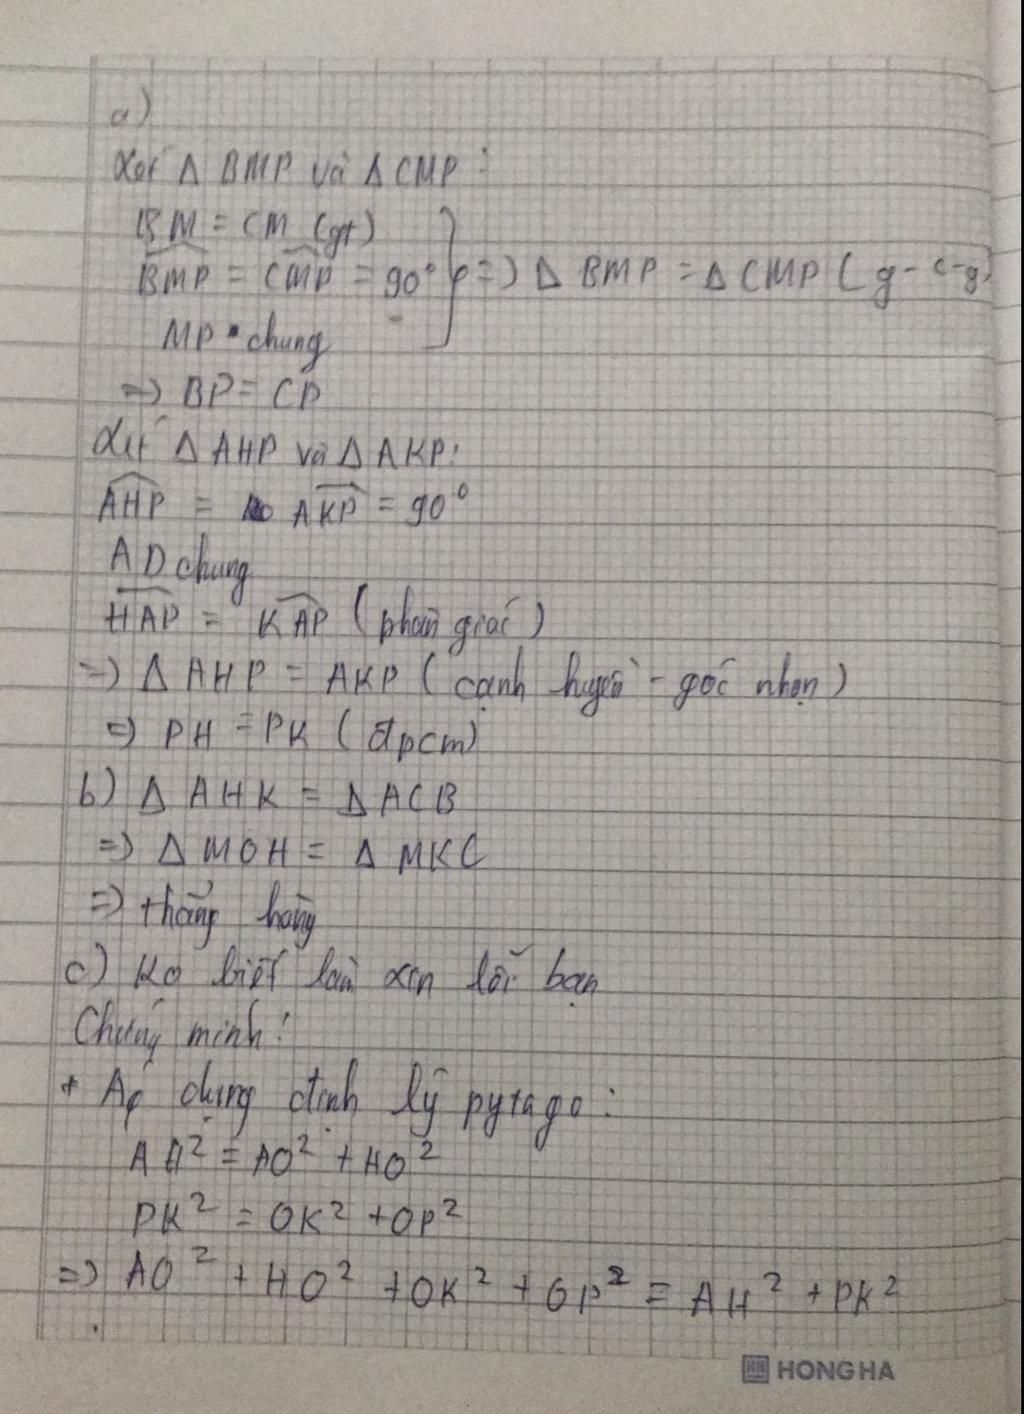 a)
Xét Δ BMP và Δ CMP:
BM = CM (gt)
BMP = CMP = 90° => Δ BMP = Δ CMP (g-c-g)
MP chung
=> BP = CP
Xét Δ AHP và Δ AKP:
AHP = AKP = 90°
AD chung
HAP = KAP (phân giác)
=> Δ AHP = AKP (cạnh huyền - góc nhọn)
=> PH = PK (đpcm)
b) Δ AHK = Δ ACB
=> Δ MOH = Δ MKC
=> thẳng hàng
c) Ko biết làm xin lỗi bạn
Chứng minh:
+ Áp dụng định lý pytago:
AH² = AO² + HO²
PK² = OK² + OP²
=> AO² + HO² + OK² + OP² = AH² + PK²
HONG HA